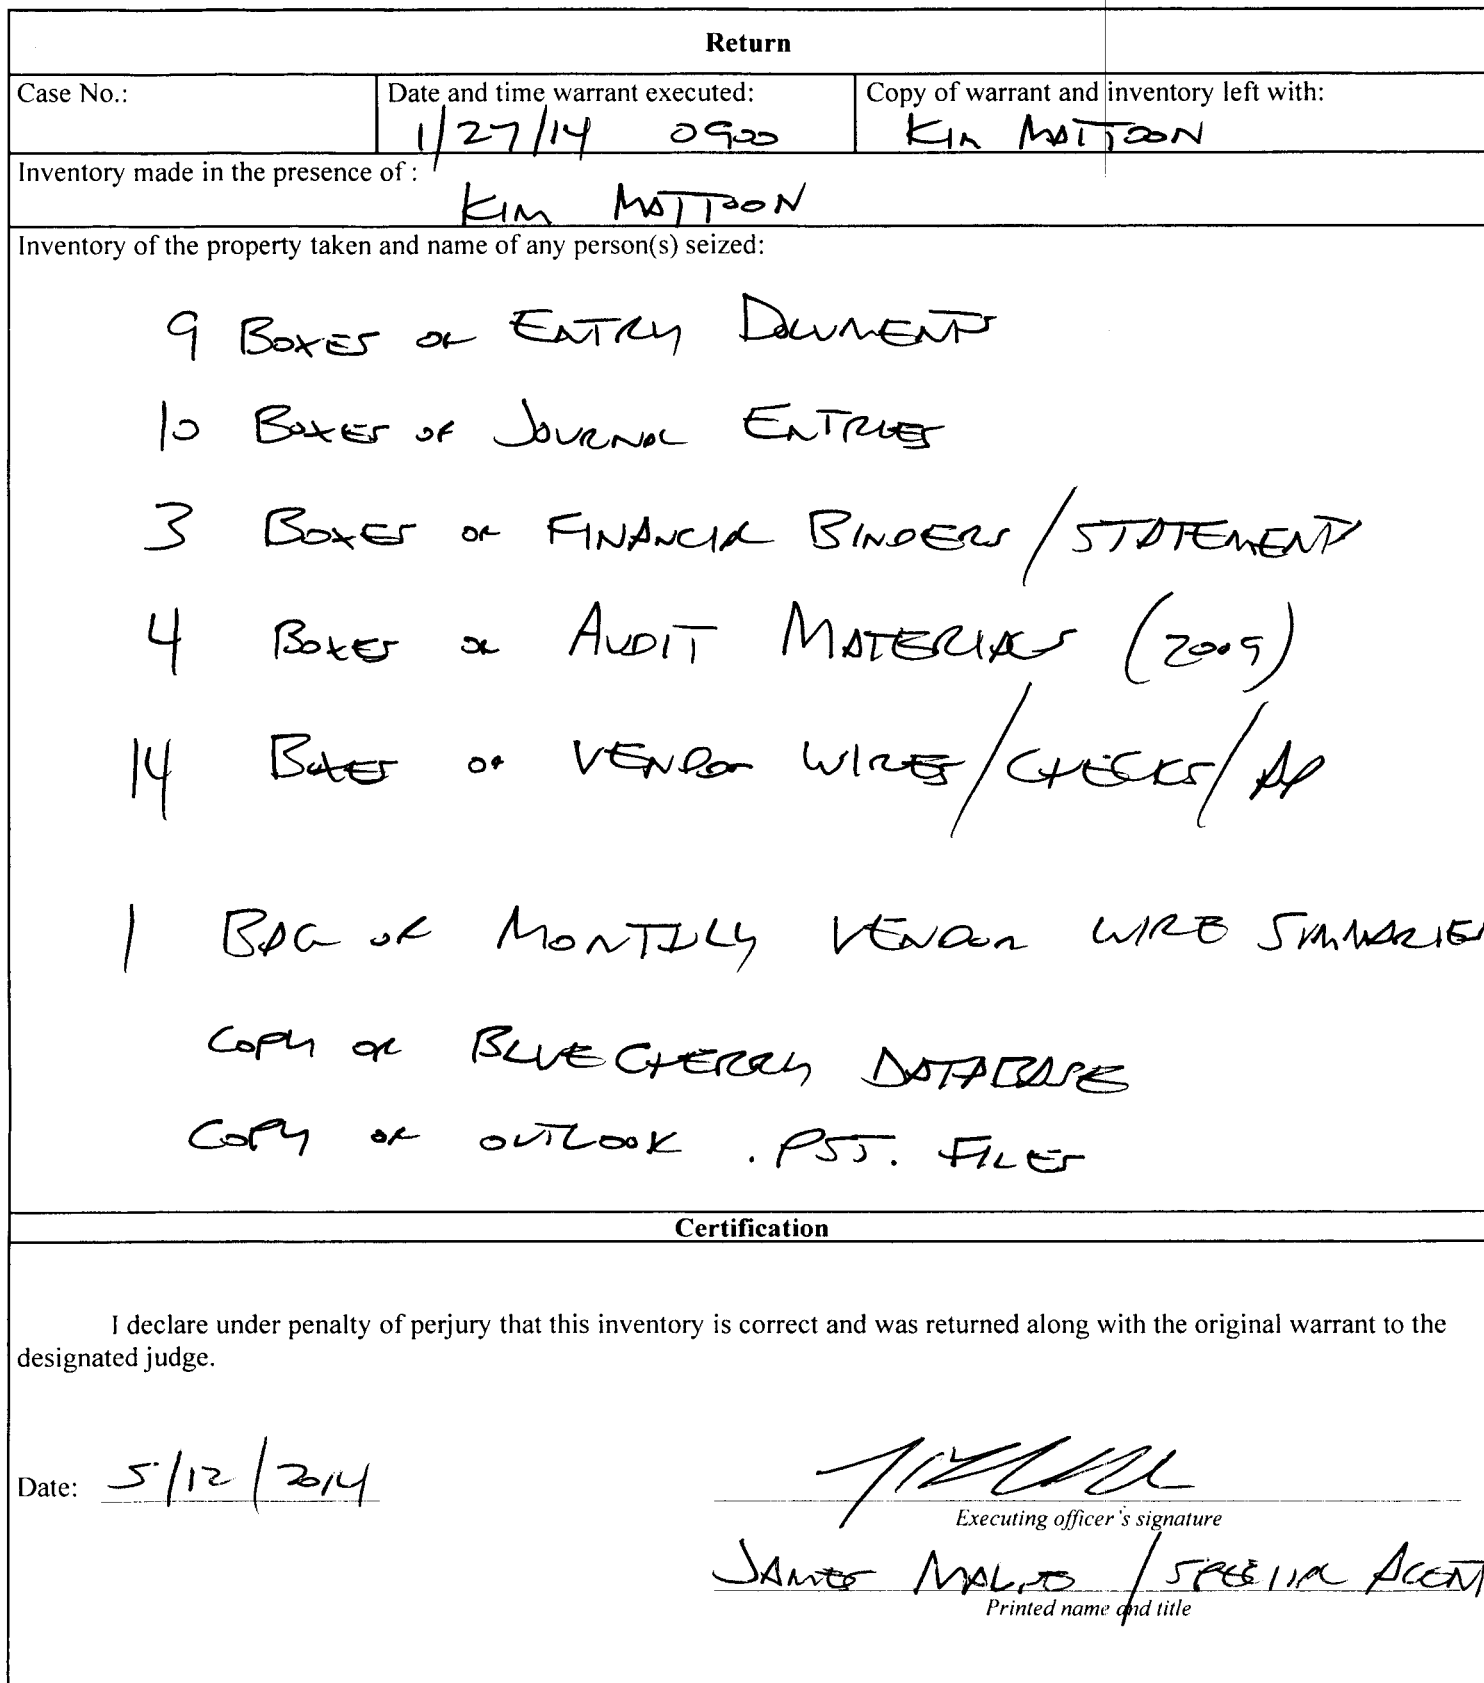 Return
Case No.:
Date and time warrant executed:
1/27/14 0900
Copy of warrant and inventory left with:
KIM MATTOON
Inventory made in the presence of :
KIM MATTOON
Inventory of the property taken and name of any person(s) seized:
9 BOXES OF ENTRY DOCUMENTS
10 BOXES OF JOURNAL ENTRIES
3 BOXES OF FINANCIAL BINDERS/STATEMENTS
4 BOXES OF AUDIT MATERIALS (2009)
14 BOXES OF VENDOR WIRES/CHECKS/AP
1 BAG OF MONTHLY VENDOR WIRE SUMMARIES
COPY OF BLUE CHERRY DATABASE
COPY OF OUTLOOK .PST. FILES
Certification
I declare under penalty of perjury that this inventory is correct and was returned along with the original warrant to the
designated judge.
Date: 5/12/2014
Executing officer's signature
JAMES / SPECIAL AGENT
Printed name and title